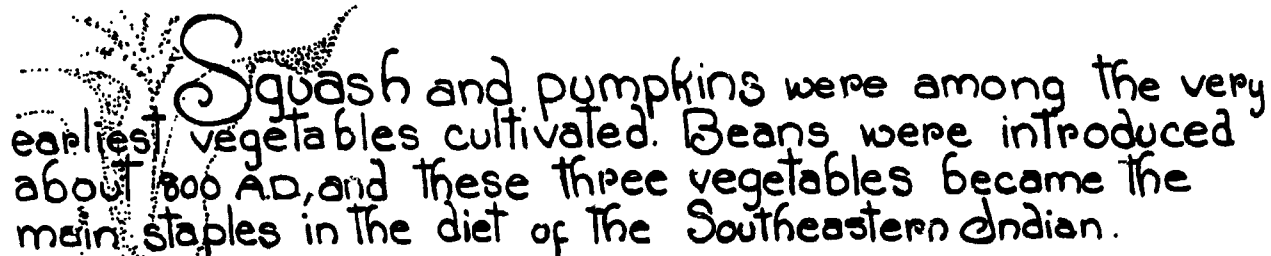 Squash and pumpkins were among the very
earliest vegetables cultivated. Beans were introduced
about 800 A.D., and these three vegetables became the
main staples in the diet of the Southeastern Indian.